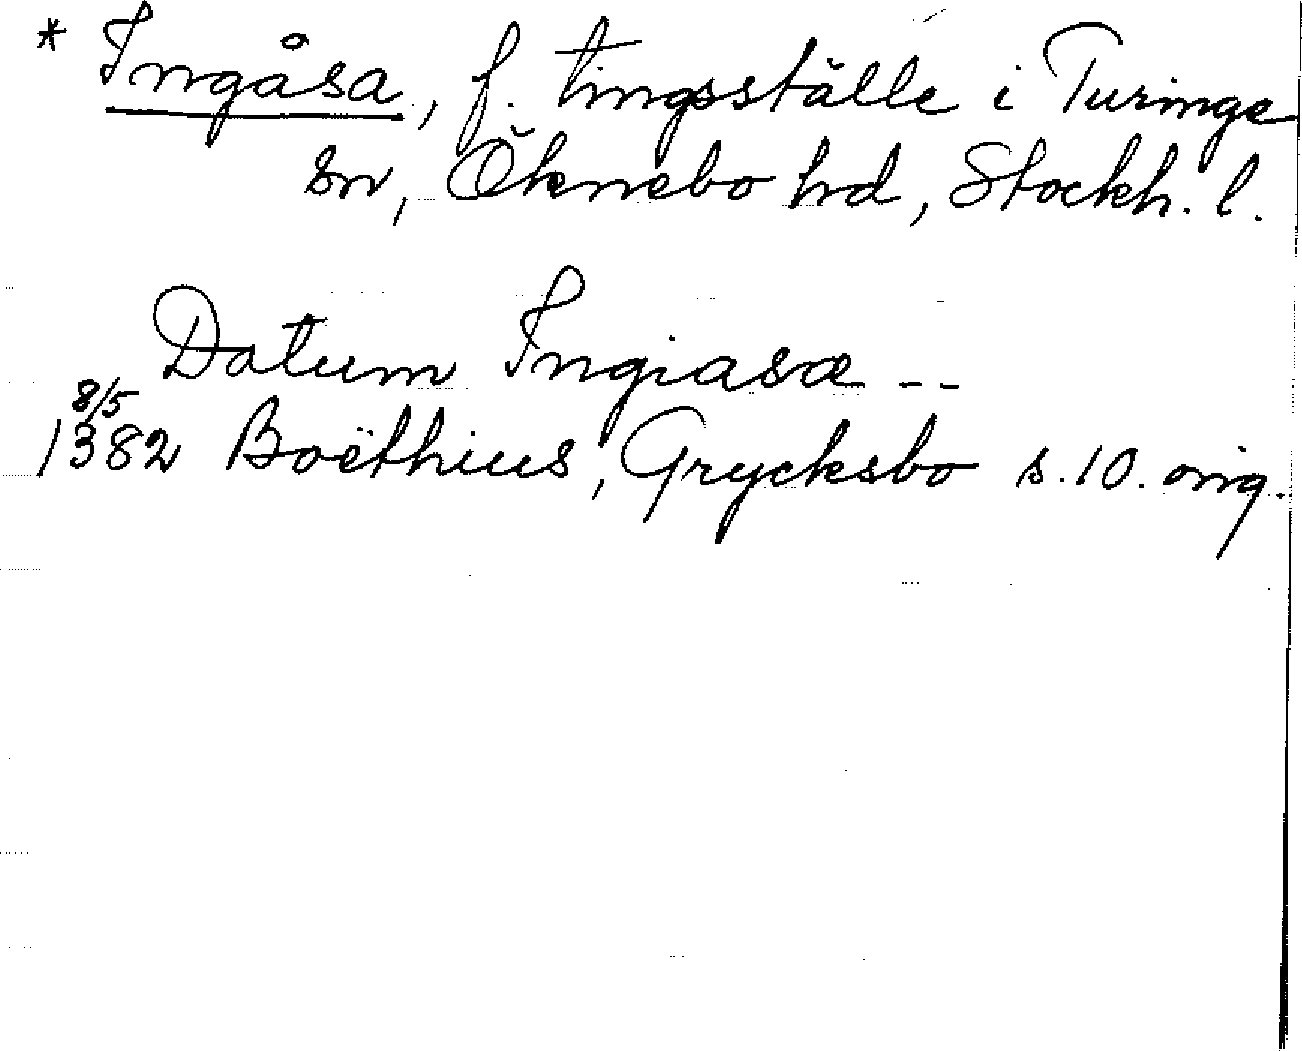 * Ingåsa, f. tingsställe i Turinge
sn, Öknebo hd, Stockh. l.
Datum Ingiasa --
8/5
1382 Boëthius, Grycksbo s. 10. orig.